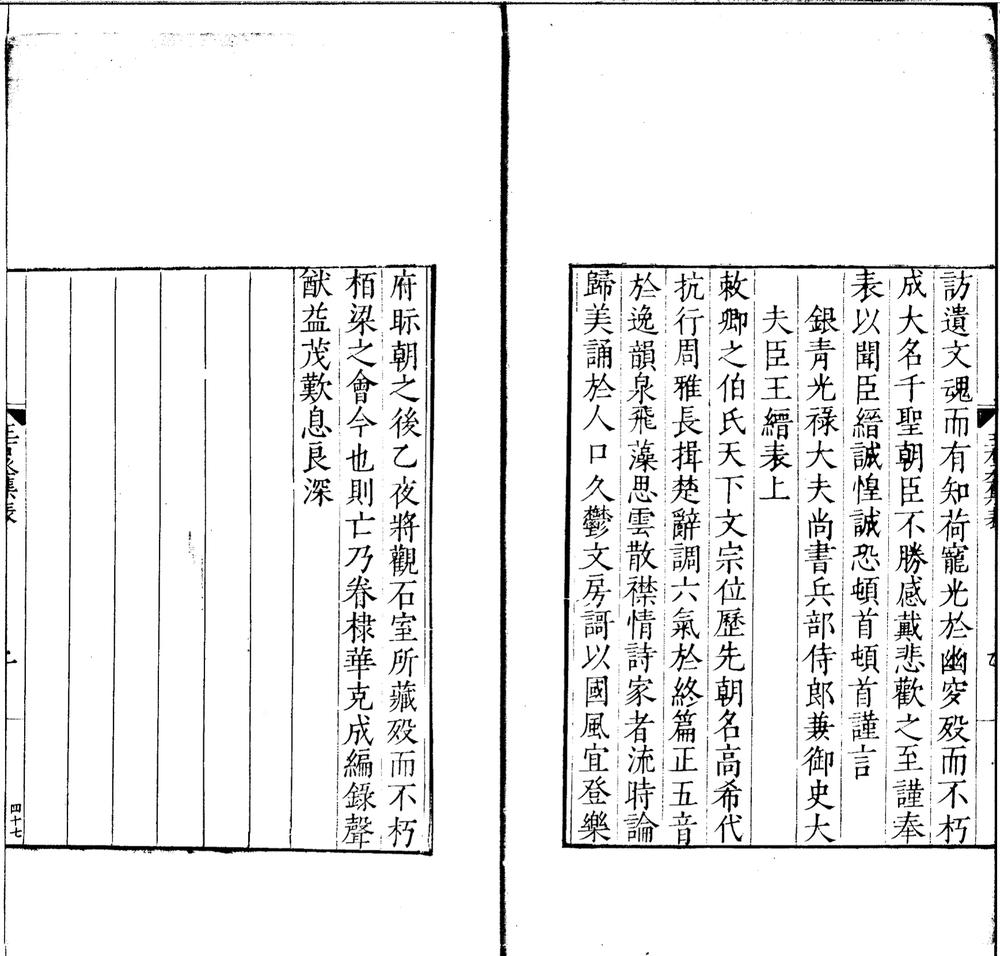 訪遺文魂而有知荷寵光於幽穸殁而不朽
成大名千聖朝臣不勝感戴悲歡之至謹奉
表以聞臣縉誠惶誠恐頓首頓首謹言
銀青光祿大夫尚書兵部侍郎兼御史大
夫臣王縉表上
敕卿之伯氏天下文宗位歷先朝名高希代
抗行周雅長揖楚辭調六氣於終篇正五音
於逸韻泉飛藻思雲散襟情詩家者流時論
歸美誦於人口久鬱文房謌以國風宜登樂
府眎朝之後乙夜將觀石室所藏殁而不朽
栢梁之會今也則亡乃眷棣華克成編錄聲
猷益茂歎息良深
四十七